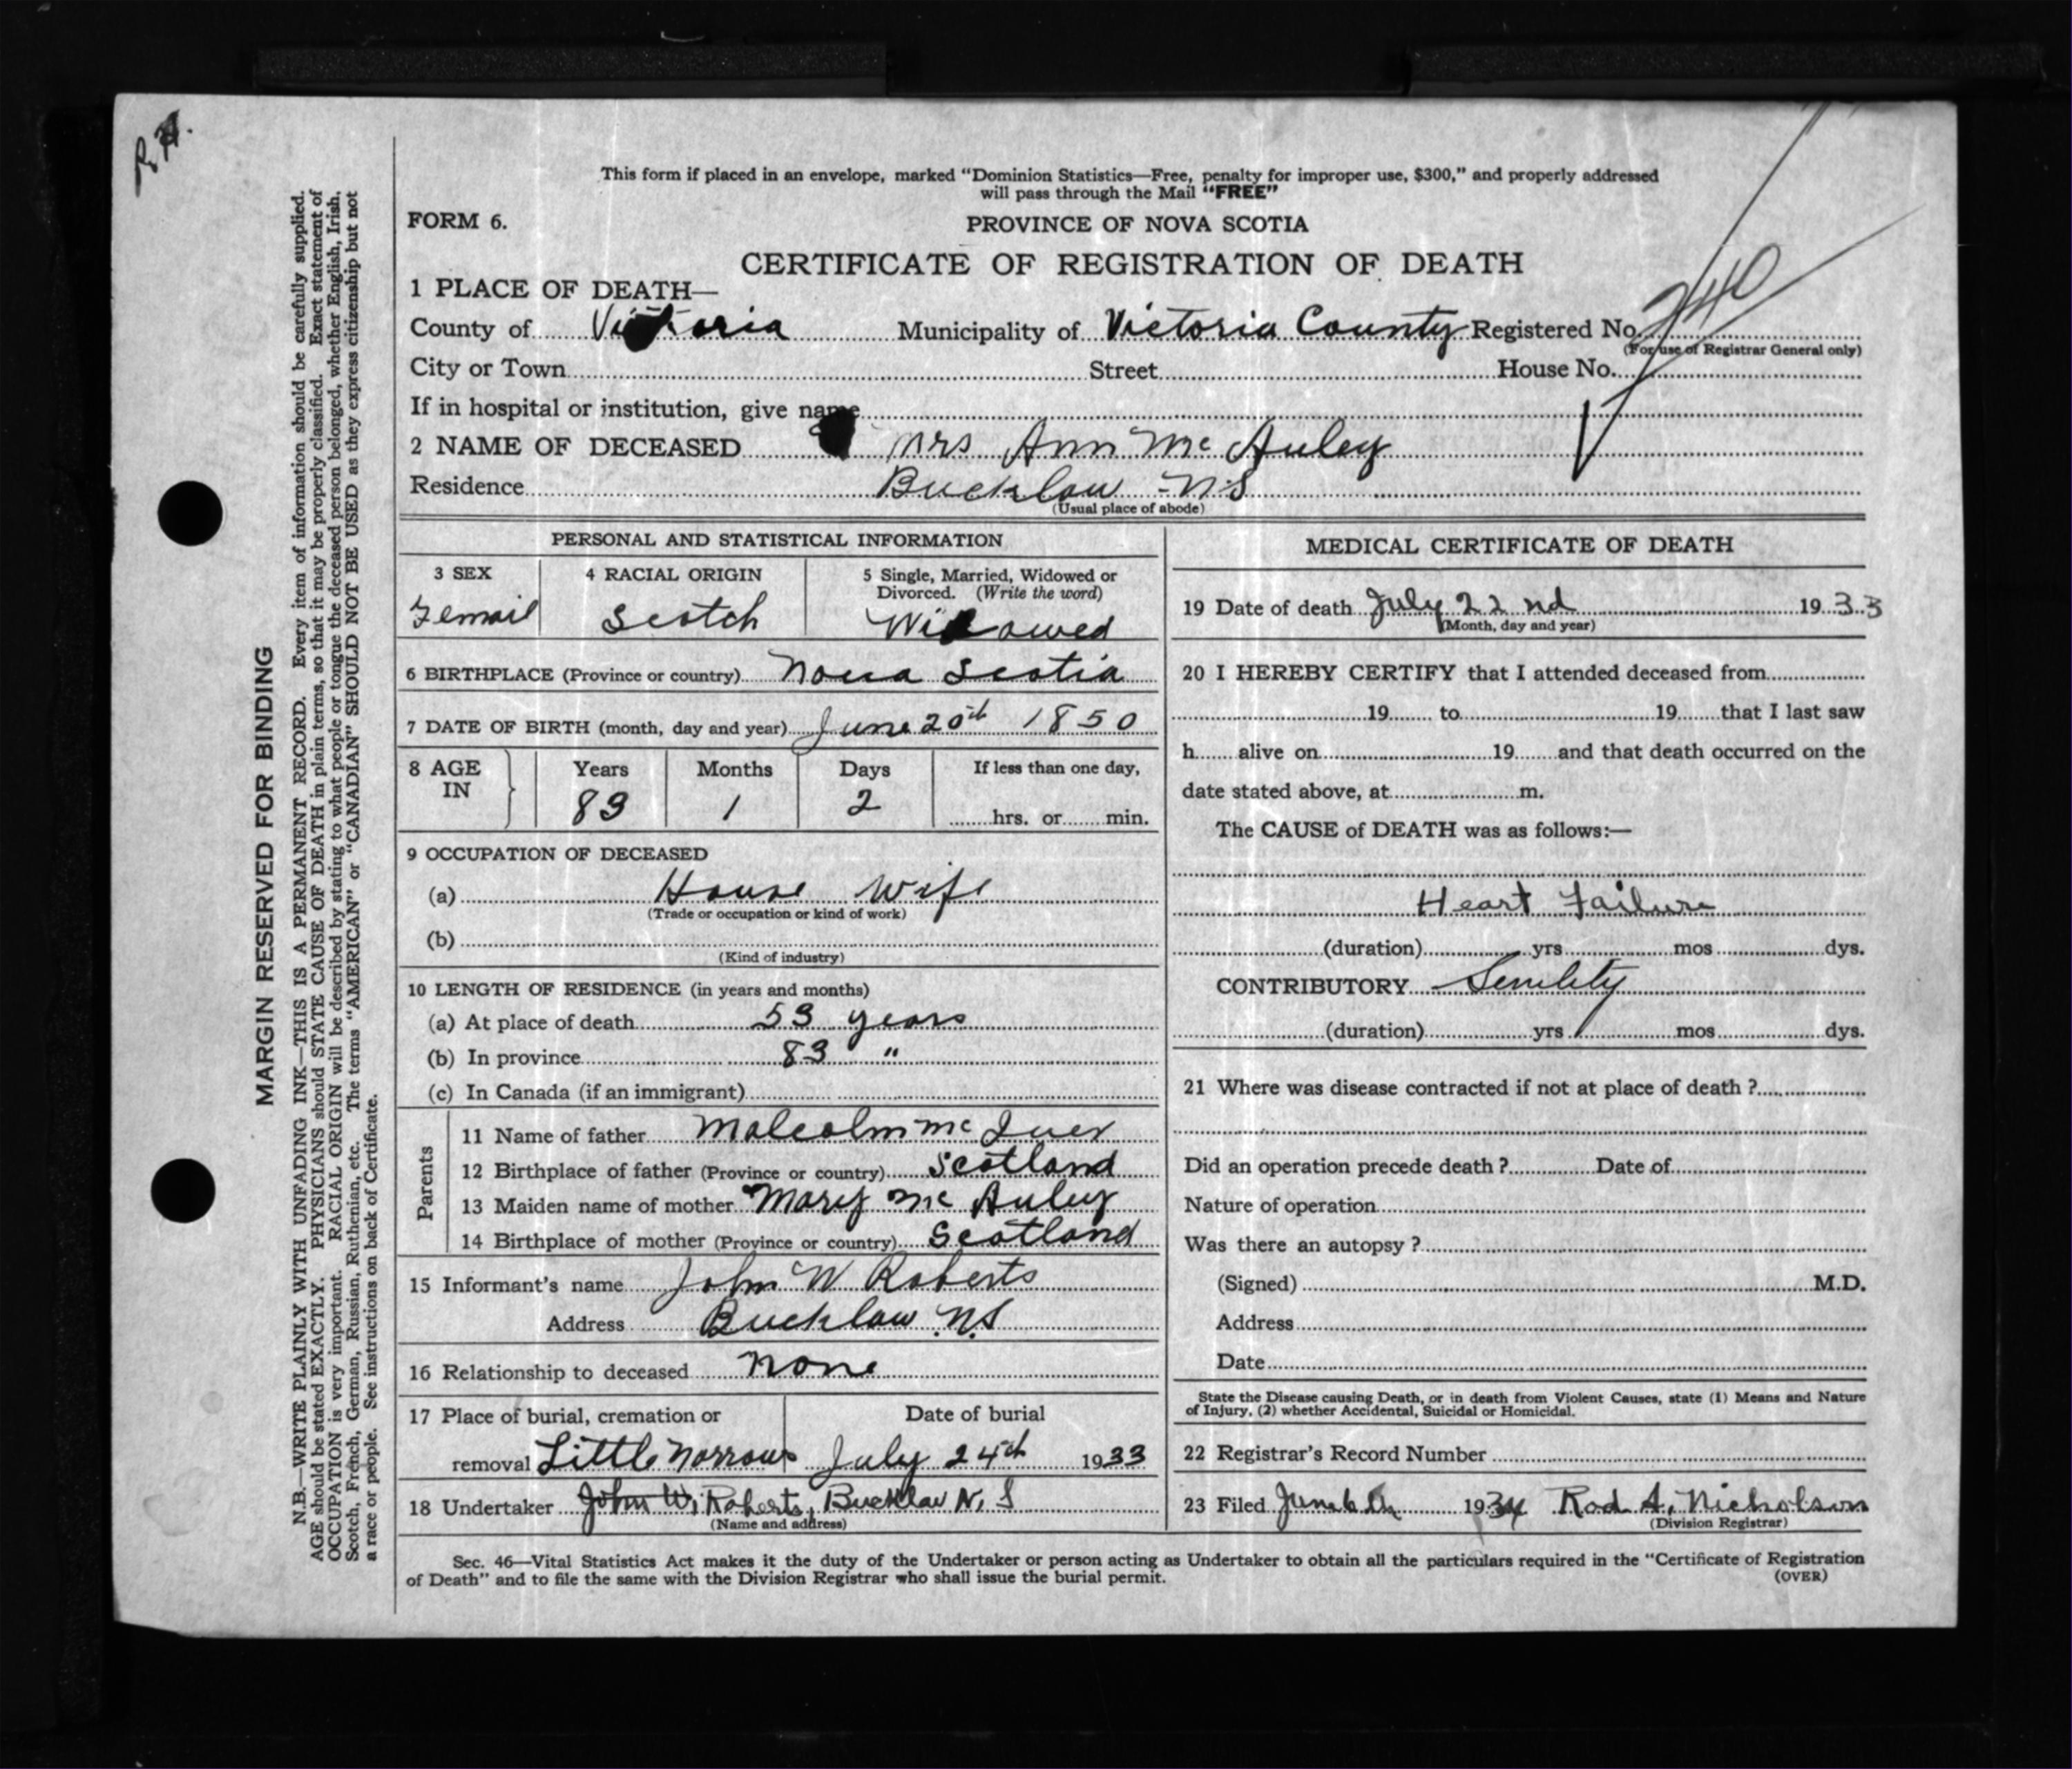 R H.
This form if placed in an envelope, marked “Dominion Statistics—Free, penalty for improper use, $300,” and properly addressed
will pass through the Mail “FREE”
FORM 6.
PROVINCE OF NOVA SCOTIA
CERTIFICATE OF REGISTRATION OF DEATH
1 PLACE OF DEATH—
County of Victoria Municipality of Victoria County Registered No. 240
(For use of Registrar General only)
City or Town Street House No.
If in hospital or institution, give name
2 NAME OF DECEASED Mrs Ann Mc Auley
Residence Bucklaw - N.S
(Usual place of abode)
PERSONAL AND STATISTICAL INFORMATION
3 SEX 4 RACIAL ORIGIN 5 Single, Married, Widowed or
Divorced. (Write the word)
Femail Scotch Widowed
6 BIRTHPLACE (Province or country) Nova Scotia
7 DATE OF BIRTH (month, day and year) June 20th 1850
8 AGE IN Years Months Days If less than one day,
83 1 2 hrs. or min.
9 OCCUPATION OF DECEASED
(a) House Wife
(Trade or occupation or kind of work)
(b)
(Kind of industry)
10 LENGTH OF RESIDENCE (in years and months)
(a) At place of death 53 years
(b) In province 83 "
(c) In Canada (if an immigrant)
Parents
11 Name of father Malcolm Mc Iver
12 Birthplace of father (Province or country) Scotland
13 Maiden name of mother Mary Mc Auley
14 Birthplace of mother (Province or country) Scotland
15 Informant’s name John W Roberts
Address Bucklaw N.S
16 Relationship to deceased None
17 Place of burial, cremation or Date of burial
removal Little Narrows July 24th 1933
18 Undertaker John W. Roberts, Bucklaw N. S
(Name and address)
MEDICAL CERTIFICATE OF DEATH
19 Date of death July 22nd 1933
(Month, day and year)
20 I HEREBY CERTIFY that I attended deceased from
19 to 19 that I last saw
h alive on 19 and that death occurred on the
date stated above, at m.
The CAUSE of DEATH was as follows:—
Heart Failure
(duration) yrs mos dys.
CONTRIBUTORY Senility
(duration) yrs mos dys.
21 Where was disease contracted if not at place of death ?
Did an operation precede death ? Date of
Nature of operation
Was there an autopsy ?
(Signed) M.D.
Address
Date
State the Disease causing Death, or in death from Violent Causes, state (1) Means and Nature
of Injury, (2) whether Accidental, Suicidal or Homicidal.
22 Registrar’s Record Number
23 Filed June 6th 1934 Rod A. Nicholson
(Division Registrar)
Sec. 46—Vital Statistics Act makes it the duty of the Undertaker or person acting as Undertaker to obtain all the particulars required in the “Certificate of Registration
of Death” and to file the same with the Division Registrar who shall issue the burial permit.
(OVER)
MARGIN RESERVED FOR BINDING
N.B.—WRITE PLAINLY WITH UNFADING INK—THIS IS A PERMANENT RECORD. Every item of information should be carefully supplied.
AGE should be stated EXACTLY. PHYSICIANS should STATE CAUSE OF DEATH in plain terms, so that it may be properly classified. Exact statement of
OCCUPATION is very important. RACIAL ORIGIN will be described by stating to what people or tongue the deceased person belonged, whether English, Irish,
Scotch, French, German, Russian, Ruthenian, etc. The terms “AMERICAN” or “CANADIAN” SHOULD NOT BE USED as they express citizenship but not
a race or people. See instructions on back of Certificate.